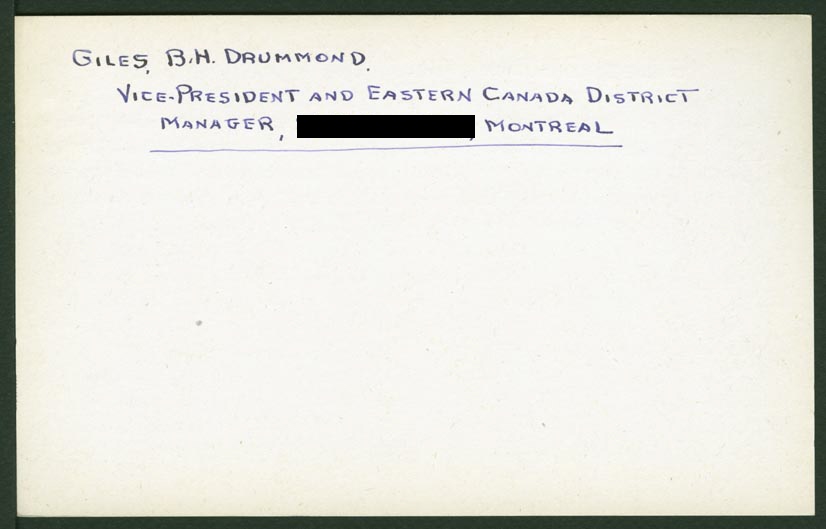 GILES, B.H. DRUMMOND.
VICE-PRESIDENT AND EASTERN CANADA DISTRICT
MANAGER, , MONTREAL